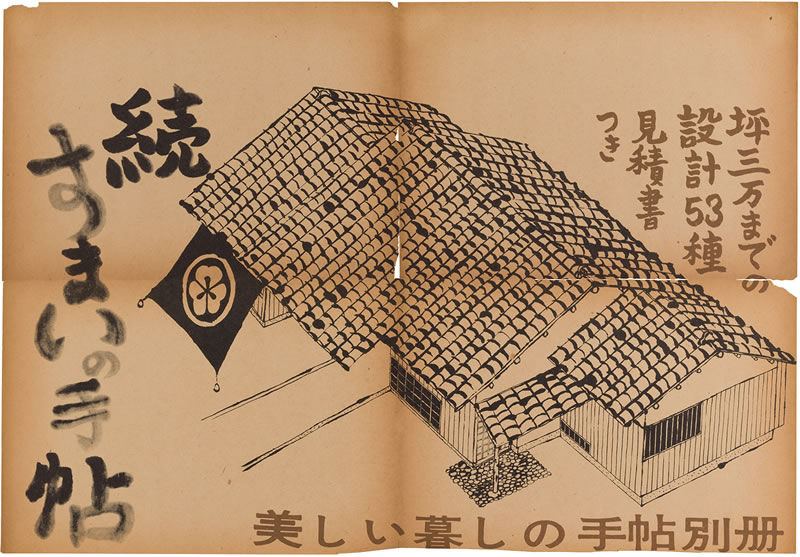 続
すまいの手帖
坪三万までの
設計53種
見積書
つき
美しい暮しの手帖別冊